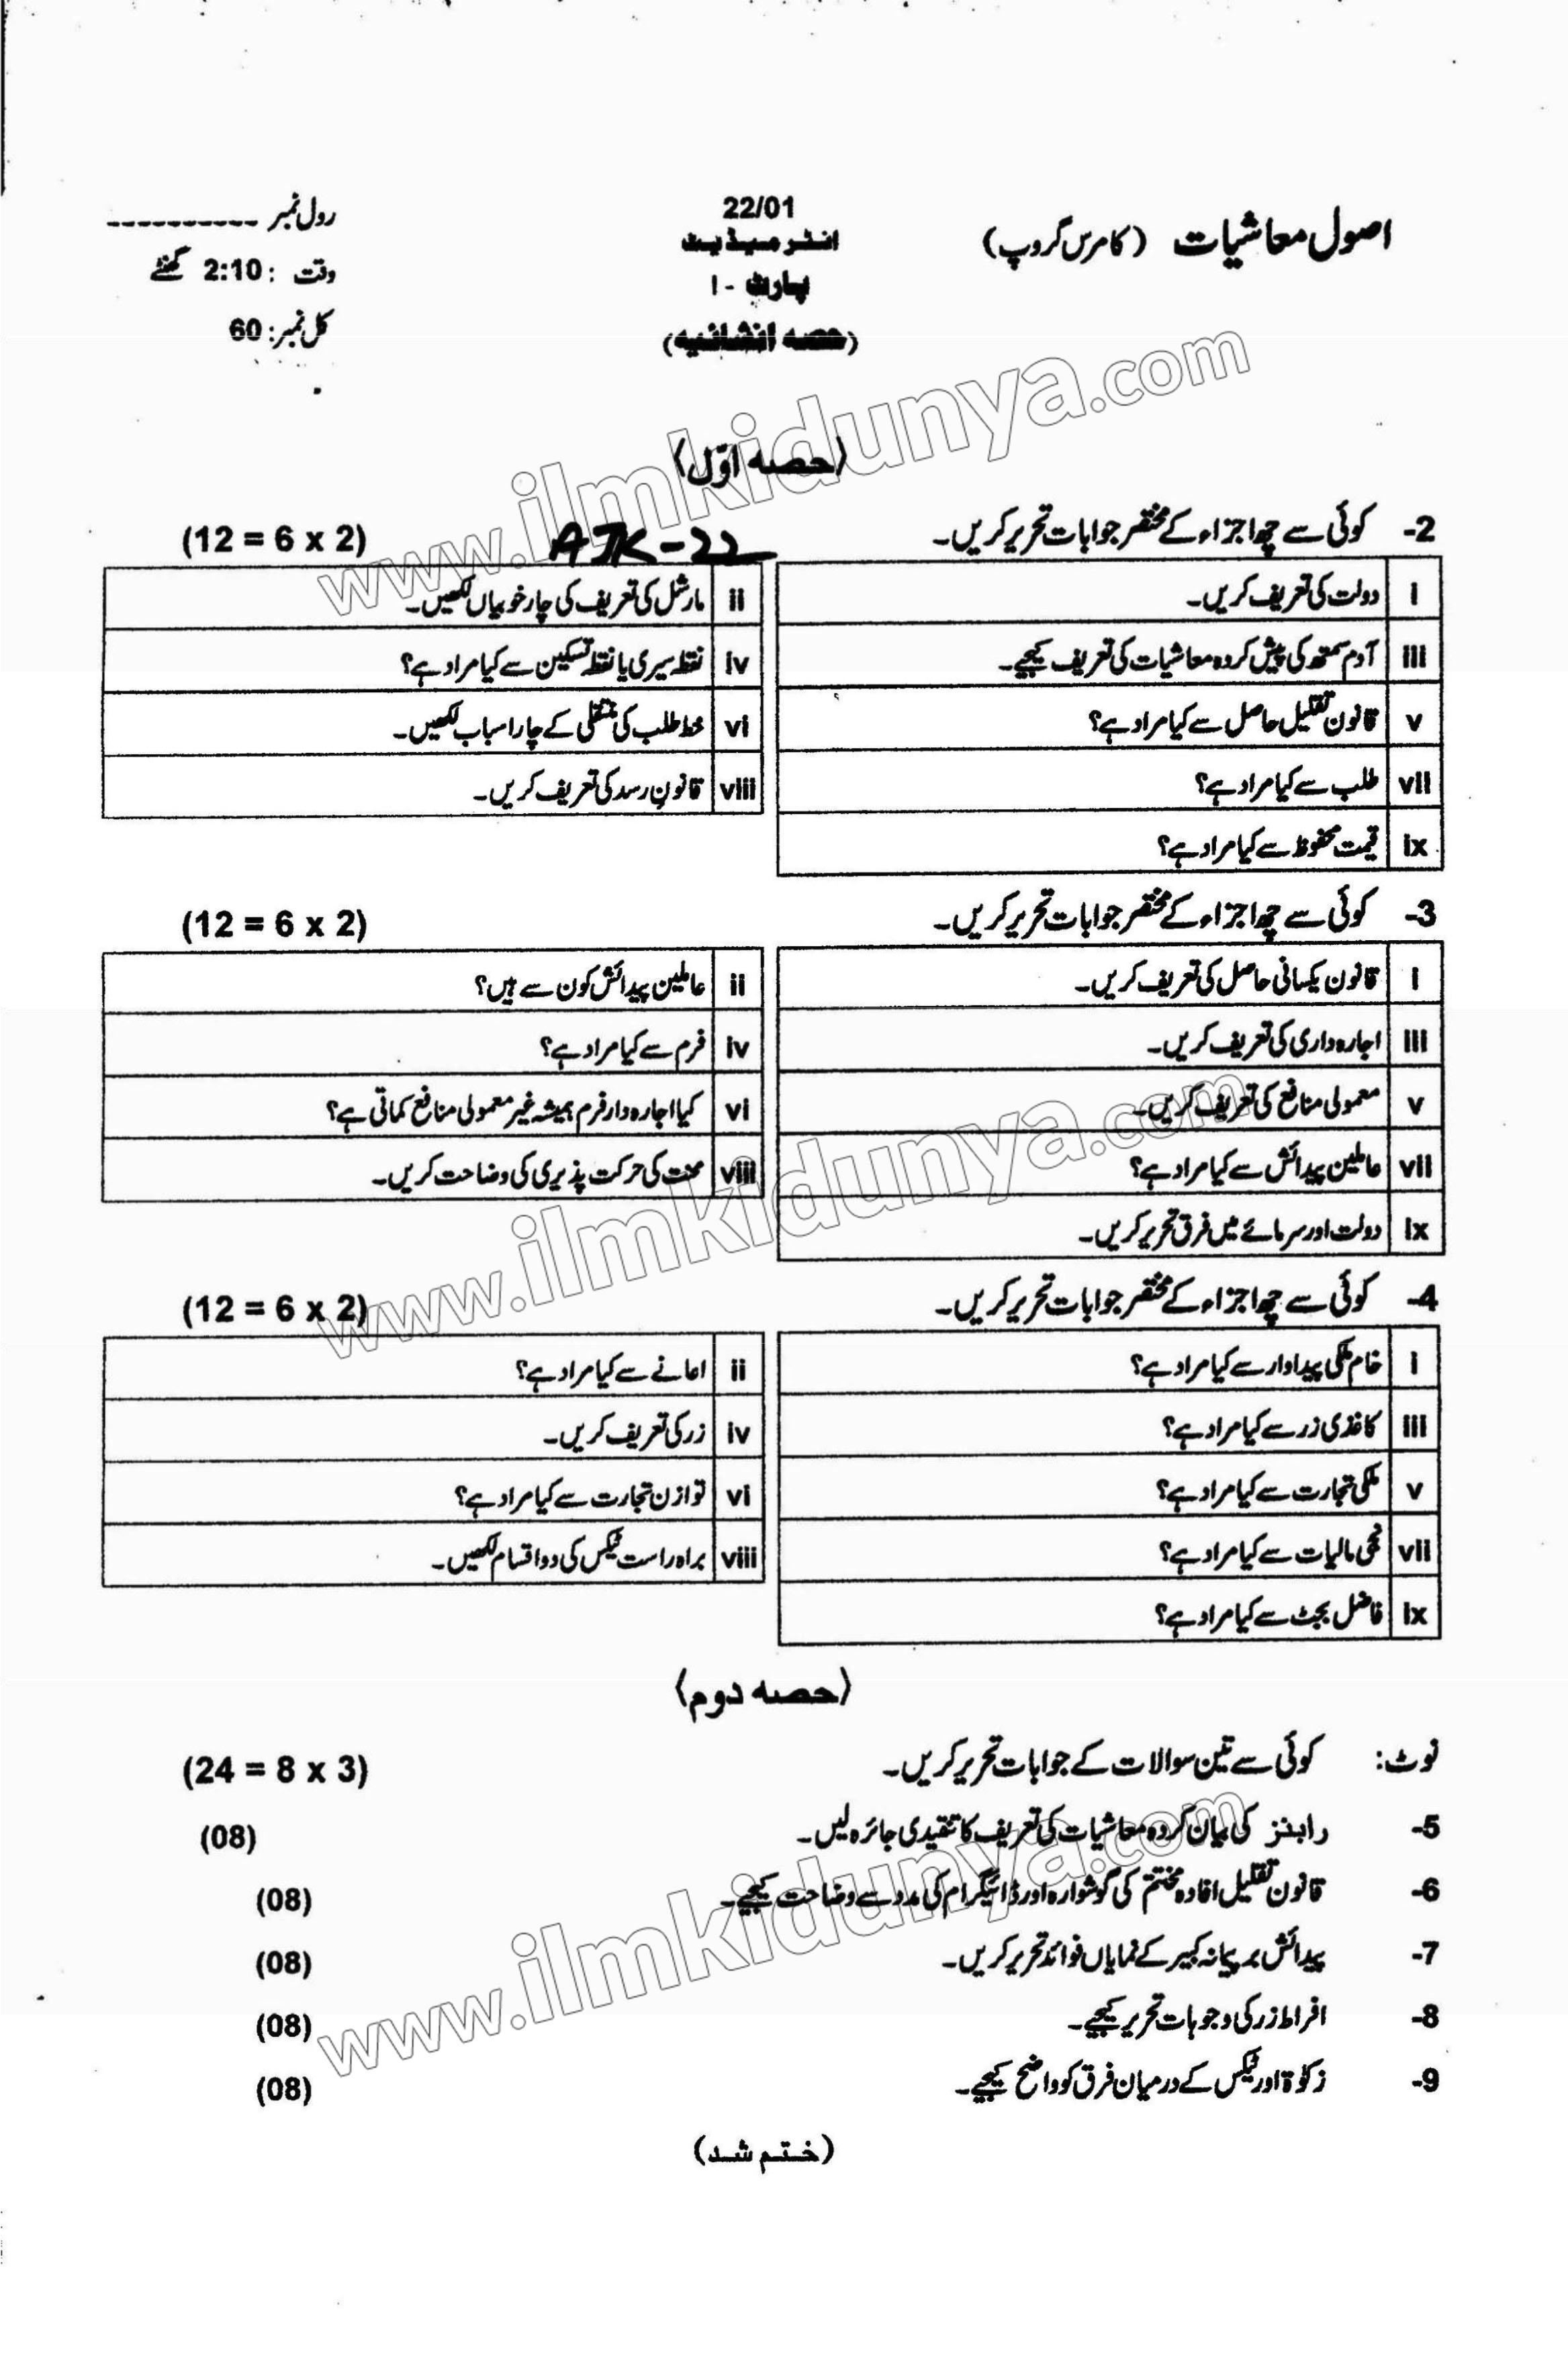 اصول معاشیات (کامرس گروپ)
22/01
انٹرمیڈیٹ
پارٹ - I
(حصہ انشائیہ)
رول نمبر ----------
وقت : 2:10 گھنٹے
کل نمبر: 60
www.ilmkidunya.com
(حصہ اوّل)
2- کوئی سے چھ اجزاء کے مختصر جوابات تحریر کریں۔ (12 = 6 x 2)
AJK-22
i دولت کی تعریف کریں۔
ii مارشل کی تعریف کی چار خوبیاں لکھیں۔
iii آدم سمتھ کی پیش کردہ معاشیات کی تعریف کیجیے۔
iv نقطہ سیری یا نقطہ تسکین سے کیا مراد ہے؟
v قانون تقلیل حاصل سے کیا مراد ہے؟
vi خط طلب کی منتقلی کے چار اسباب لکھیں۔
vii طلب سے کیا مراد ہے؟
viii قانونِ رسد کی تعریف کریں۔
ix قیمت محفوظ سے کیا مراد ہے؟
3- کوئی سے چھ اجزاء کے مختصر جوابات تحریر کریں۔ (12 = 6 x 2)
i قانون یکسانی حاصل کی تعریف کریں۔
ii عاملین پیدائش کون سے ہیں؟
iii اجارہ داری کی تعریف کریں۔
iv فرم سے کیا مراد ہے؟
v معمولی منافع کی تعریف کریں۔
vi کیا اجارہ دار فرم ہمیشہ غیر معمولی منافع کماتی ہے؟
vii عاملین پیدائش سے کیا مراد ہے؟
viii محنت کی حرکت پذیری کی وضاحت کریں۔
ix دولت اور سرمائے میں فرق تحریر کریں۔
www.ilmkidunya.com
4- کوئی سے چھ اجزاء کے مختصر جوابات تحریر کریں۔ (12 = 6 x 2)
i خام ملکی پیداوار سے کیا مراد ہے؟
ii اعانے سے کیا مراد ہے؟
iii کاغذی زر سے کیا مراد ہے؟
iv زر کی تعریف کریں۔
v ملکی تجارت سے کیا مراد ہے؟
vi توازن تجارت سے کیا مراد ہے؟
vii نجی مالیات سے کیا مراد ہے؟
viii براہ راست ٹیکس کی دو اقسام لکھیں۔
ix فاضل بجٹ سے کیا مراد ہے؟
(حصہ دوم)
نوٹ: کوئی سے تین سوالات کے جوابات تحریر کریں۔ (24 = 8 x 3)
5- رابنز کی بیان کردہ معاشیات کی تعریف کا تنقیدی جائزہ لیں۔ (08)
6- قانون تقلیل افادہ مختتم کی گوشوارہ اور ڈائیگرام کی مدد سے وضاحت کیجیے۔ (08)
7- پیدائش بر پیمانہ کبیر کے نمایاں فوائد تحریر کریں۔ (08)
8- افراط زر کی وجوہات تحریر کیجیے۔ (08)
9- زکوٰۃ اور ٹیکس کے درمیان فرق کو واضح کیجیے۔ (08)
www.ilmkidunya.com
(ختم شد)